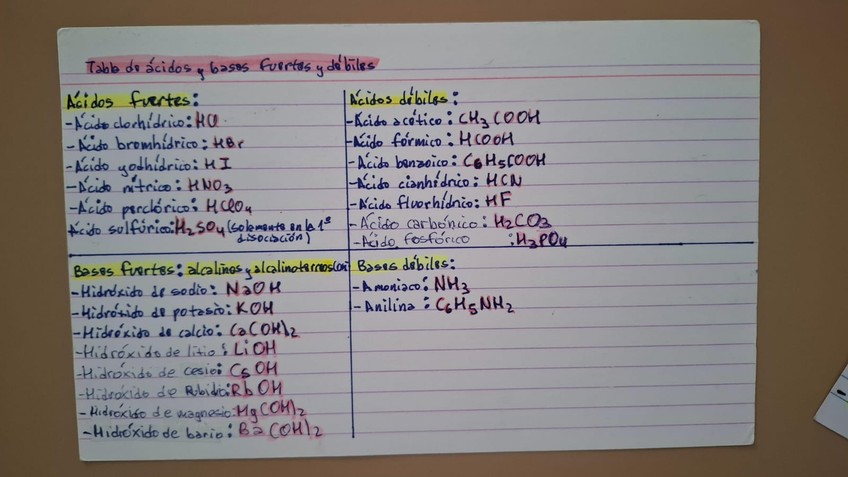 Tabla de ácidos y bases fuertes y débiles
Ácidos fuertes:
-Ácido clorhídrico: HCl
-Ácido bromhídrico: HBr
-Ácido yodhídrico: HI
-Ácido nítrico: HNO3
-Ácido perclórico: HClO4
Ácido sulfúrico: H2SO4 (solamente en la 1ª
disociación)
Ácidos débiles:
-Ácido acético: CH3COOH
-Ácido fórmico: HCOOH
-Ácido benzoico: C6H5COOH
-Ácido cianhídrico: HCN
-Ácido fluorhídrico: HF
-Ácido carbónico: H2CO3
-Ácido fosfórico : H3PO4
Bases fuertes: alcalinos y alcalinoterreos
-Hidróxido de sodio: NaOH
-Hidróxido de potasio: KOH
-Hidróxido de calcio: Ca(OH)2
-Hidróxido de litio: LiOH
-Hidróxido de cesio: CsOH
-Hidróxido de Rubidio: RbOH
-Hidróxido de magnesio: Mg(OH)2
-Hidróxido de bario: Ba(OH)2
Bases débiles:
-Amoniaco: NH3
-Anilina: C6H5NH2